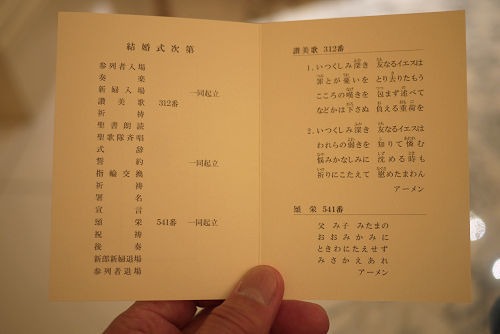 結婚式次第
参列者入場
奏楽
新婦入場 一同起立
讃美歌 312番
祈祷
聖書朗読
聖歌隊斉唱
式辞
誓約 一同起立
指輪交換
祈祷
署名
宣言
頌栄 541番 一同起立
祝祷
後奏
新郎新婦退場
参列者退場
讃美歌 312番
1. いつくしみ深き 友なるイエスは
罪とが憂いを とり去りたもう
こころの嘆きを 包まず述べて
などかは下さぬ 負える重荷を
2. いつくしみ深き 友なるイエスは
われらの弱きを 知りて憐む
悩みかなしみに 沈める時も
祈りにこたえて 慰めたまわん
アーメン
頌栄 541番
父 み子 みたまの
おおみかみに
ときわにたえせず
みさかえあれ
アーメン